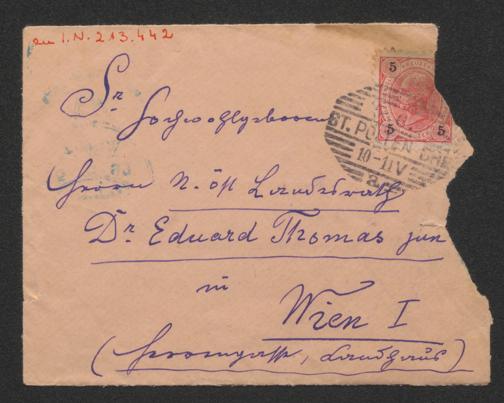 zu I.N. 213.442
5
5 5
ST. PÖLTEN
10-11V
Sr Hochwohlgeboren
Herrn N. öst Landesrath
Dr Eduard Thomas jun
in
Wien I
(Herrengasse, Landhaus)